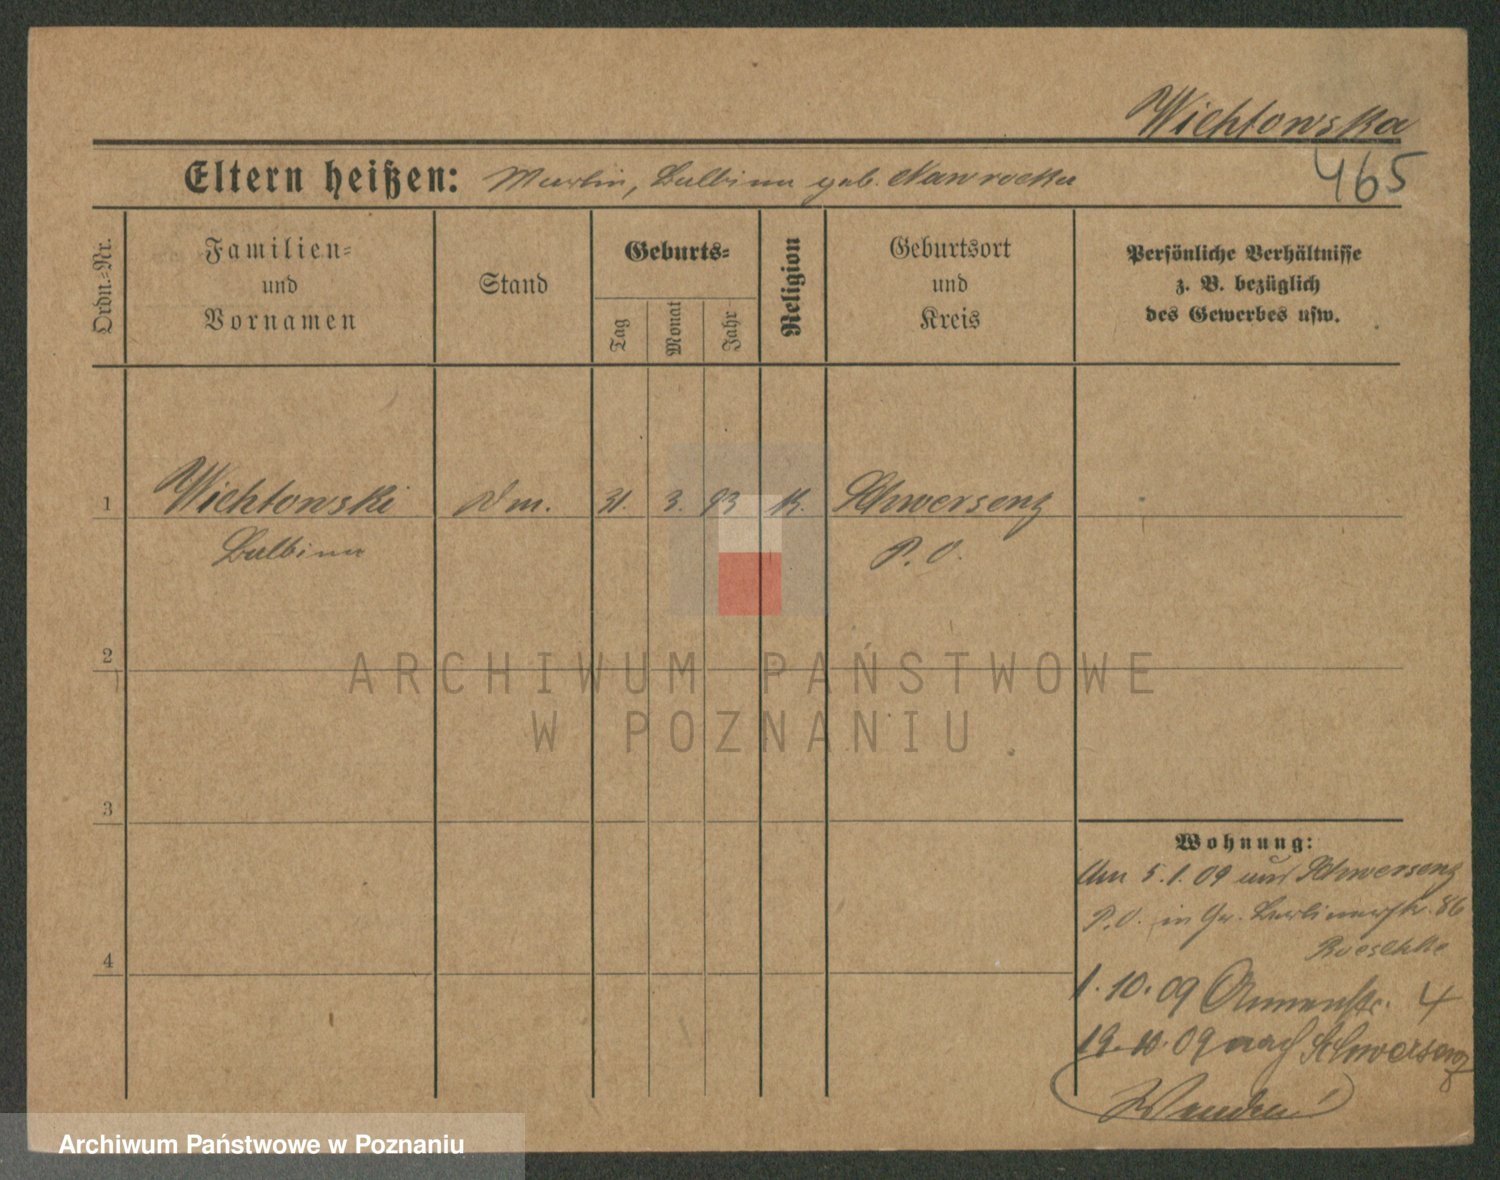 Wichtowska
465
Eltern heißen: Martin, Balbina geb. Nawrocka
Ordn.-Nr.
Familien-
und
Vornamen
Stand
Geburts-
Tag
Monat
Jahr
Religion
Geburtsort
und
Kreis
Persönliche Verhältnisse
z. B. bezüglich
des Gewerbes usw.
1
Wichtowski
Dm.
31.
3.
93
K.
Schwersenz
Balbina
P. O.
2
3
4
Wohnung:
Am 5.1.09 aus Schwersenz
P.O. in Gr. Berlinerstr. 86
Roeschke
1.10.09 4
19. 09 nach Schwersenz
ARCHIWUM PAŃSTWOWE
W POZNANIU
Archiwum Państwowe w Poznaniu